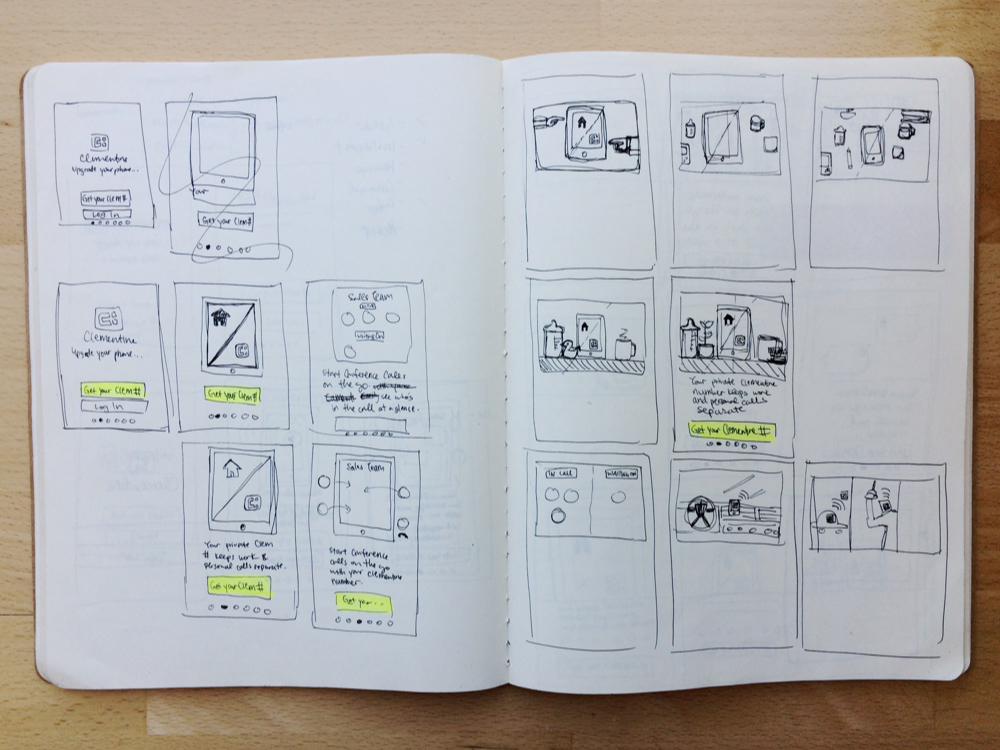 Clementine
Upgrade your phone...
Get your Clem #
Log In
Your
Get your Clem#
Clementine
Upgrade your phone...
Get your Clem #
Log In
Get your Clem#
Sales Team
Start Conference Calls
on the go
see who's
in the call at a glance.
Your private Clem
# keeps work &
personal calls separate.
Get your Clem #
Sales Team
Start Conference
calls on the go
with your Clementine
number.
Get your...
Your private Clementine
number keeps work
and personal calls
separate
Get your Clementine #
In Call
Waiting On